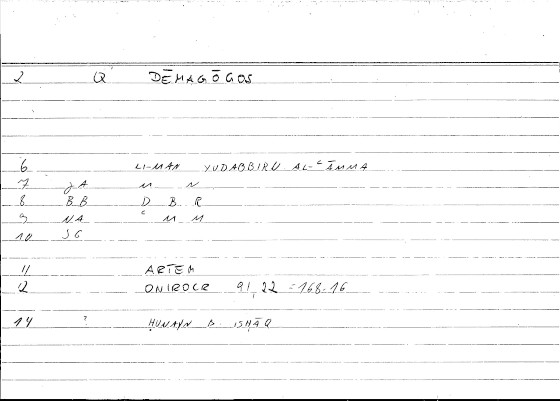 2 Q DĒMAGŌGOS
6 LI-MAN YUDABBIRU AL-ʿĀMMA
7 JA M N
8 BB D B R
9 NA ʿ M M
10 SG
11 ARTEM
12 ONIROCR 91,22 =168-16
14 ? ḤUNAYN B. ISḤĀQ